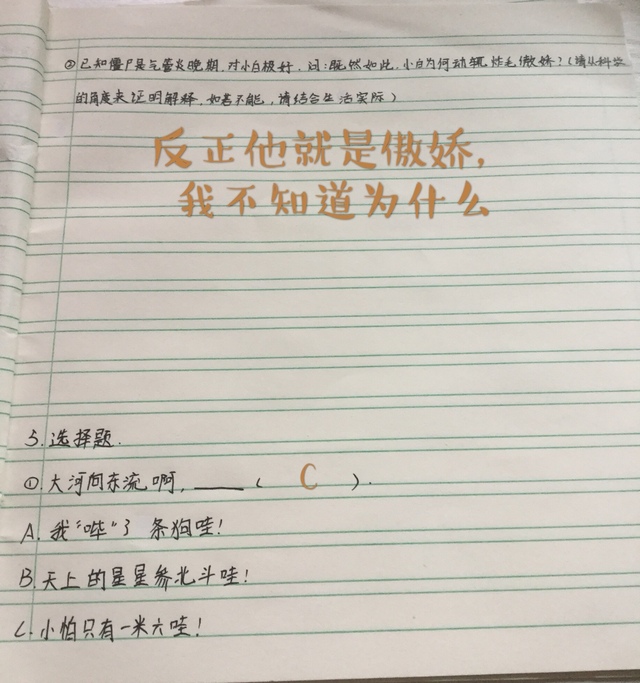 ②已知僵尸是气管炎晚期,对小白极好,问:既然如此,小白为何动辄炸毛傲娇?(请从科学
的角度来证明解释,如若不能,请结合生活实际)
反正他就是傲娇,
我不知道为什么
5.选择题.
①大河向东流啊,____( C ).
A.我“哔”了条狗哇!
B.天上的星星参北斗哇!
C.小怕只有一米六哇!